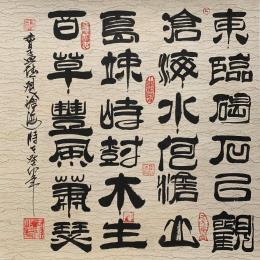 東臨碣石以觀
滄海水何澹山
島竦峙樹木生
百草豐風蕭瑟
曹孟德觀滄海時癸卯年